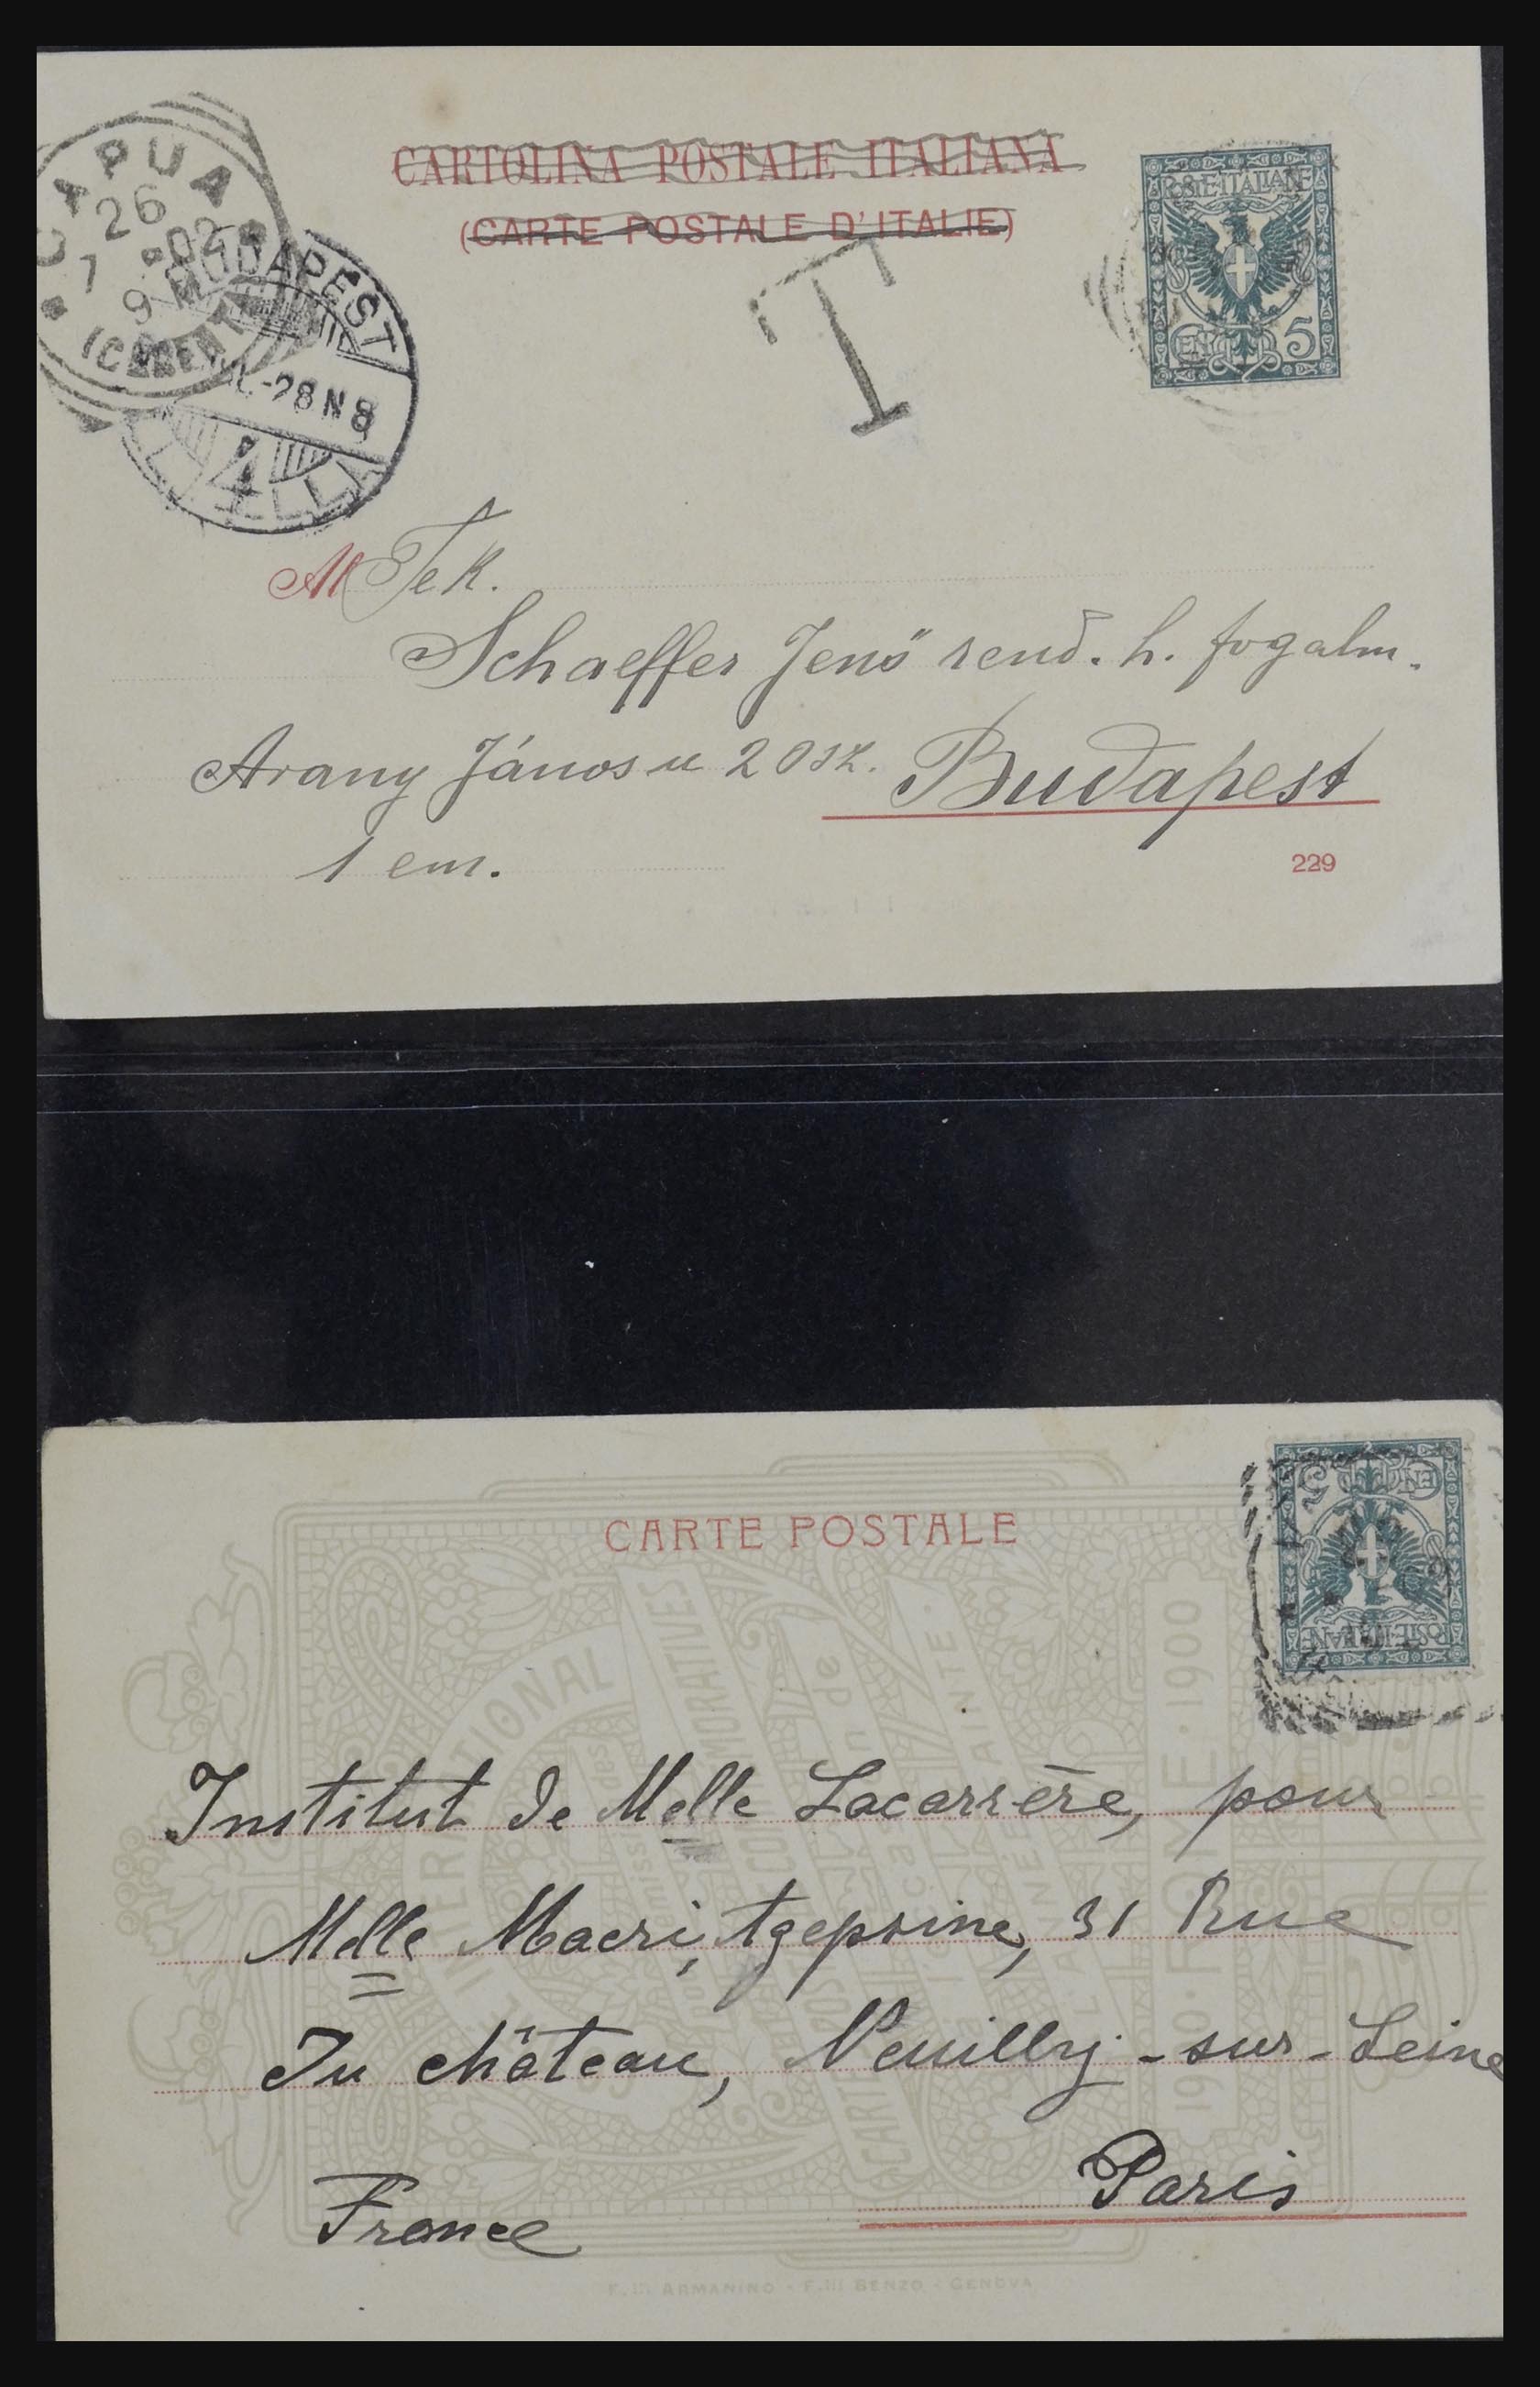 CARTOLINA POSTALE ITALIANA
(CARTE POSTALE D'ITALIE)
POSTE ITALIANE
CENT 5
CAPUA
26
7 02
9
(CASERTA)
BUDAPEST
-28 N 8
4
T
M Tek.
Schaeffer Jenő rend. h. fogalm.
Arany János u 20 sz. Budapest
1 em.
229
CARTE POSTALE
POSTE ITALIANE
CENT 5
1900 · ROME · 1900
Institut de Melle Lacarrère, pour
Melle Macri, 31 Rue
du château, Neuilly-sur-Seine
Paris
France
F.lli ARMANINO - F.lli BENZO - GENOVA